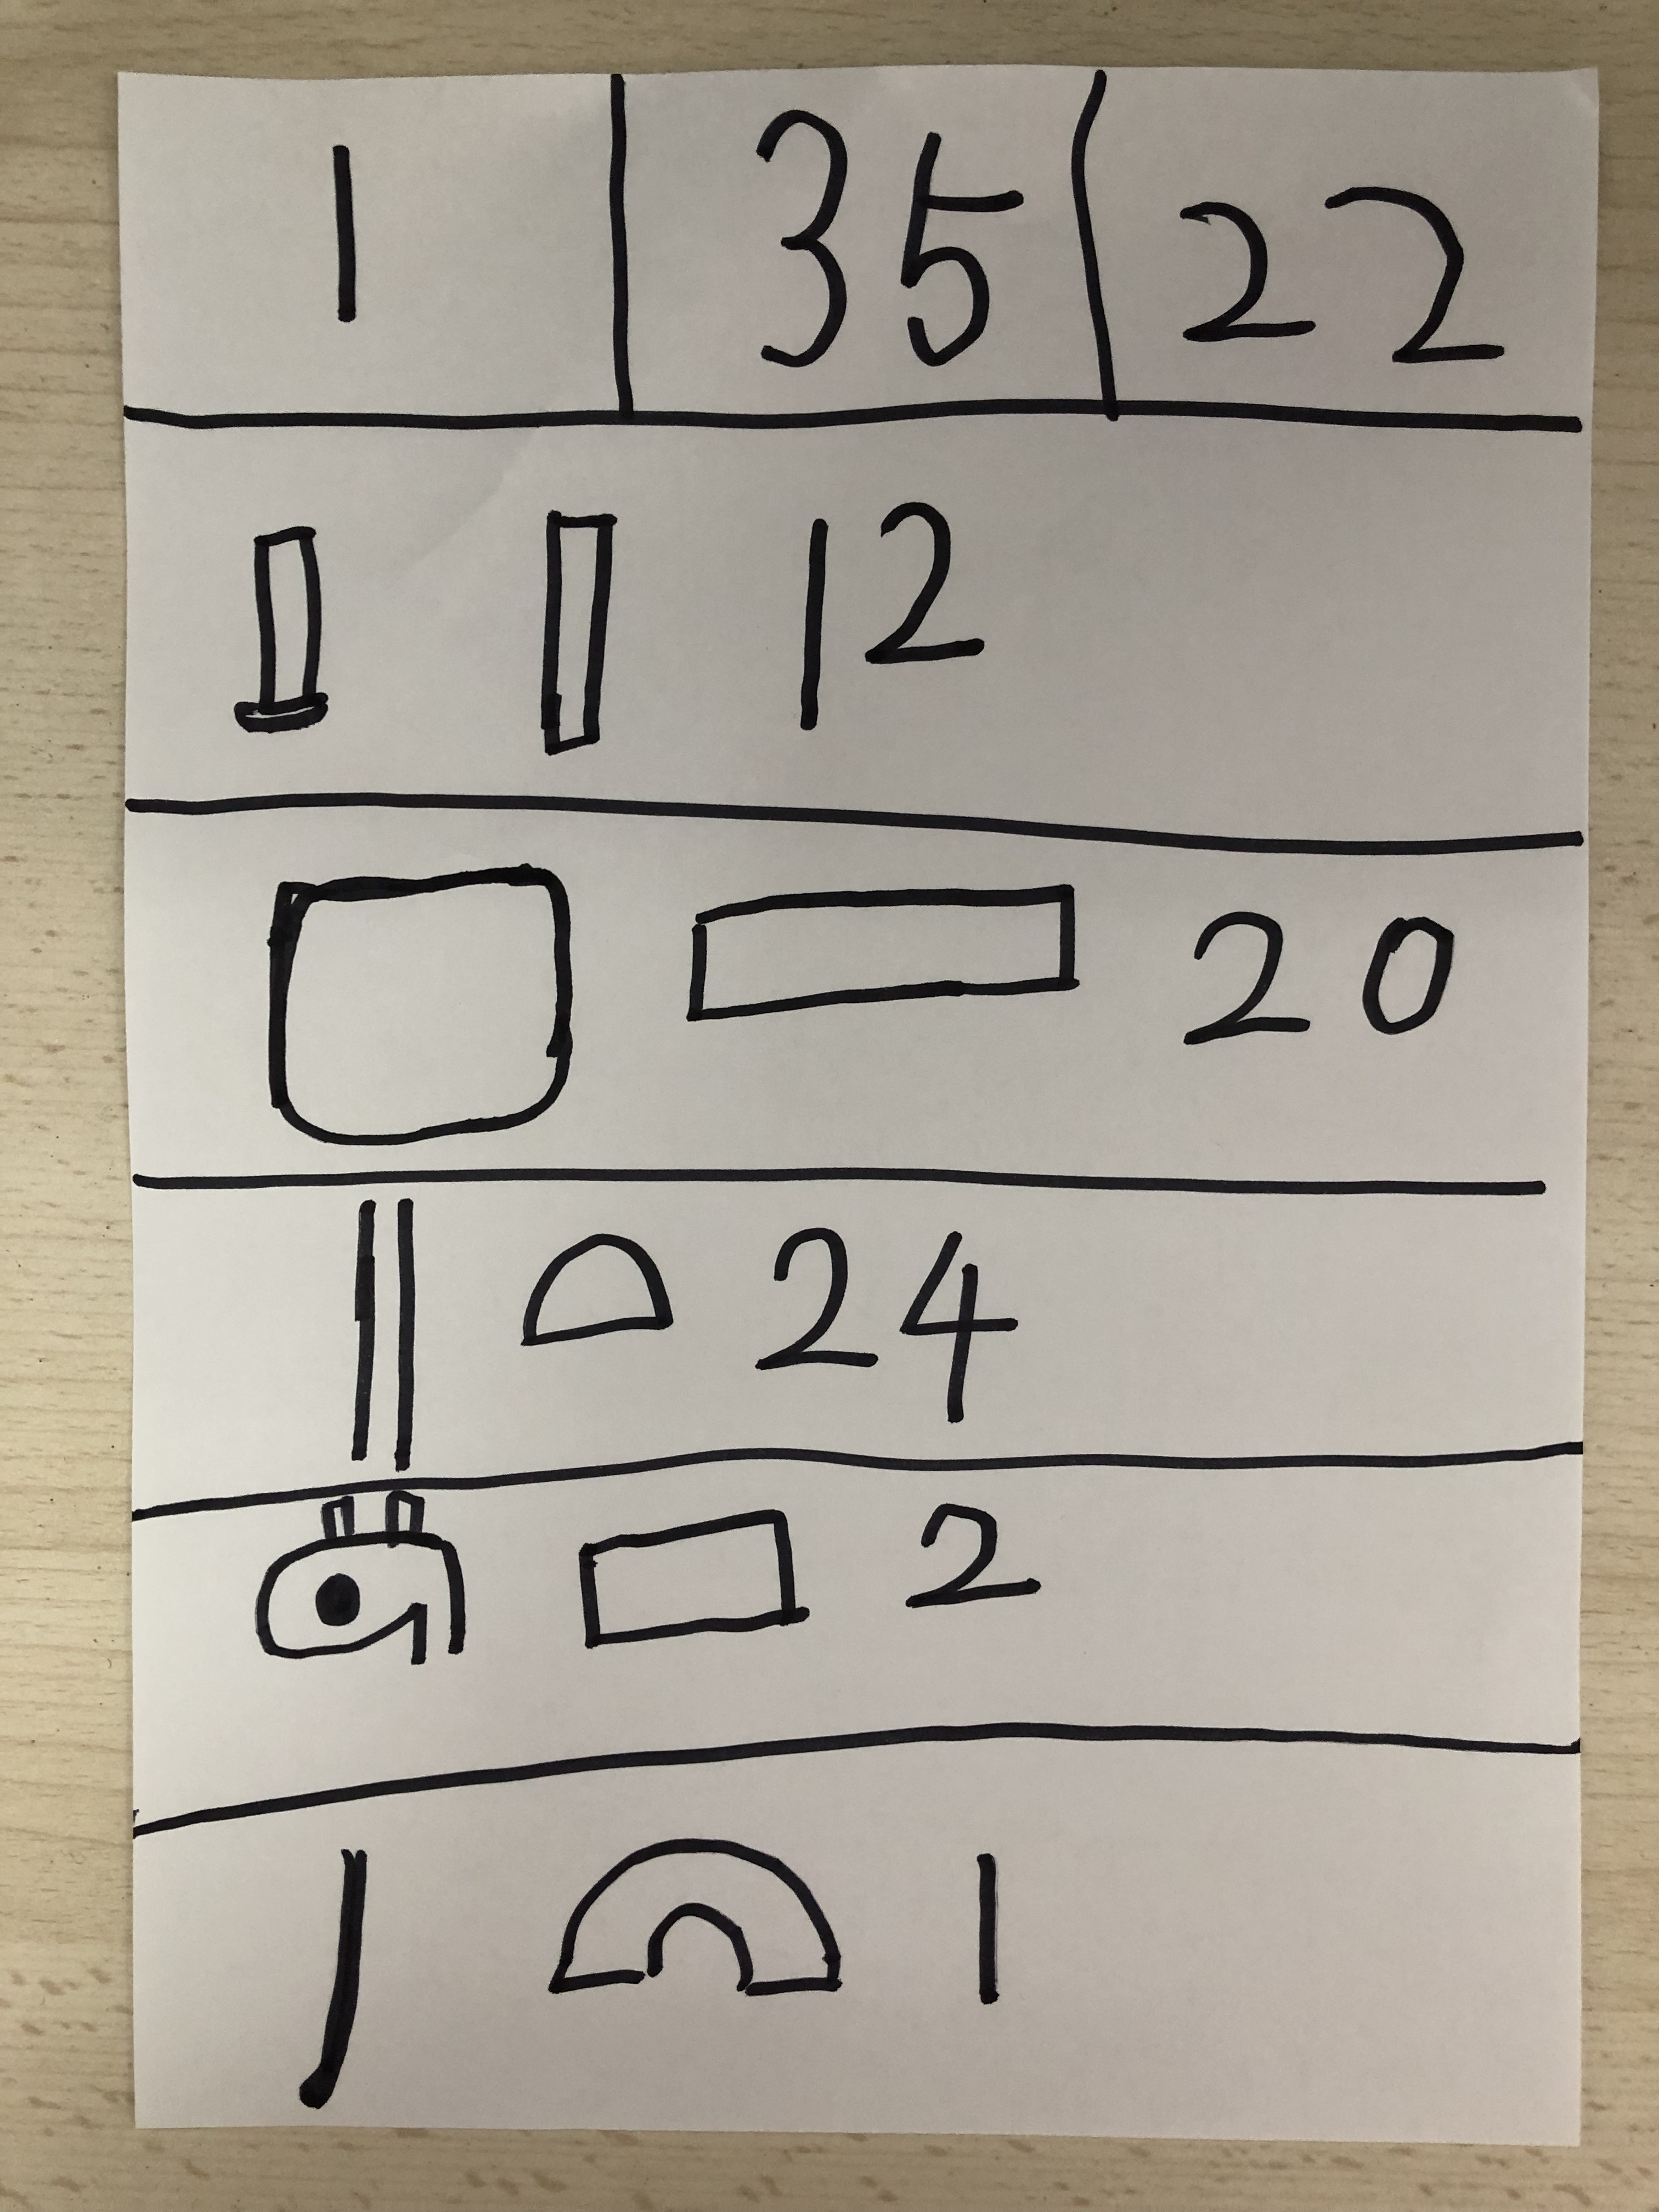 1 35 22
12
20
24
2
1